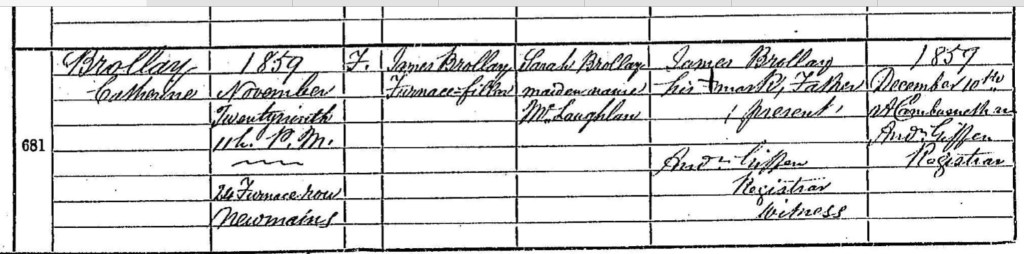 681
Brollay
Catherine
1859
November
Twentyninth
11h. P.M.
24 Furnace-row
Newmains
F.
James Brollay
Furnace-filler
Sarah Brollay
maiden name
McLaughlan
James Brollay
his + mark, Father
(present)
Andw Giffen
Registrar
Witness
1859
December 10th
At Cambusnethan
Andw Giffen
Registrar